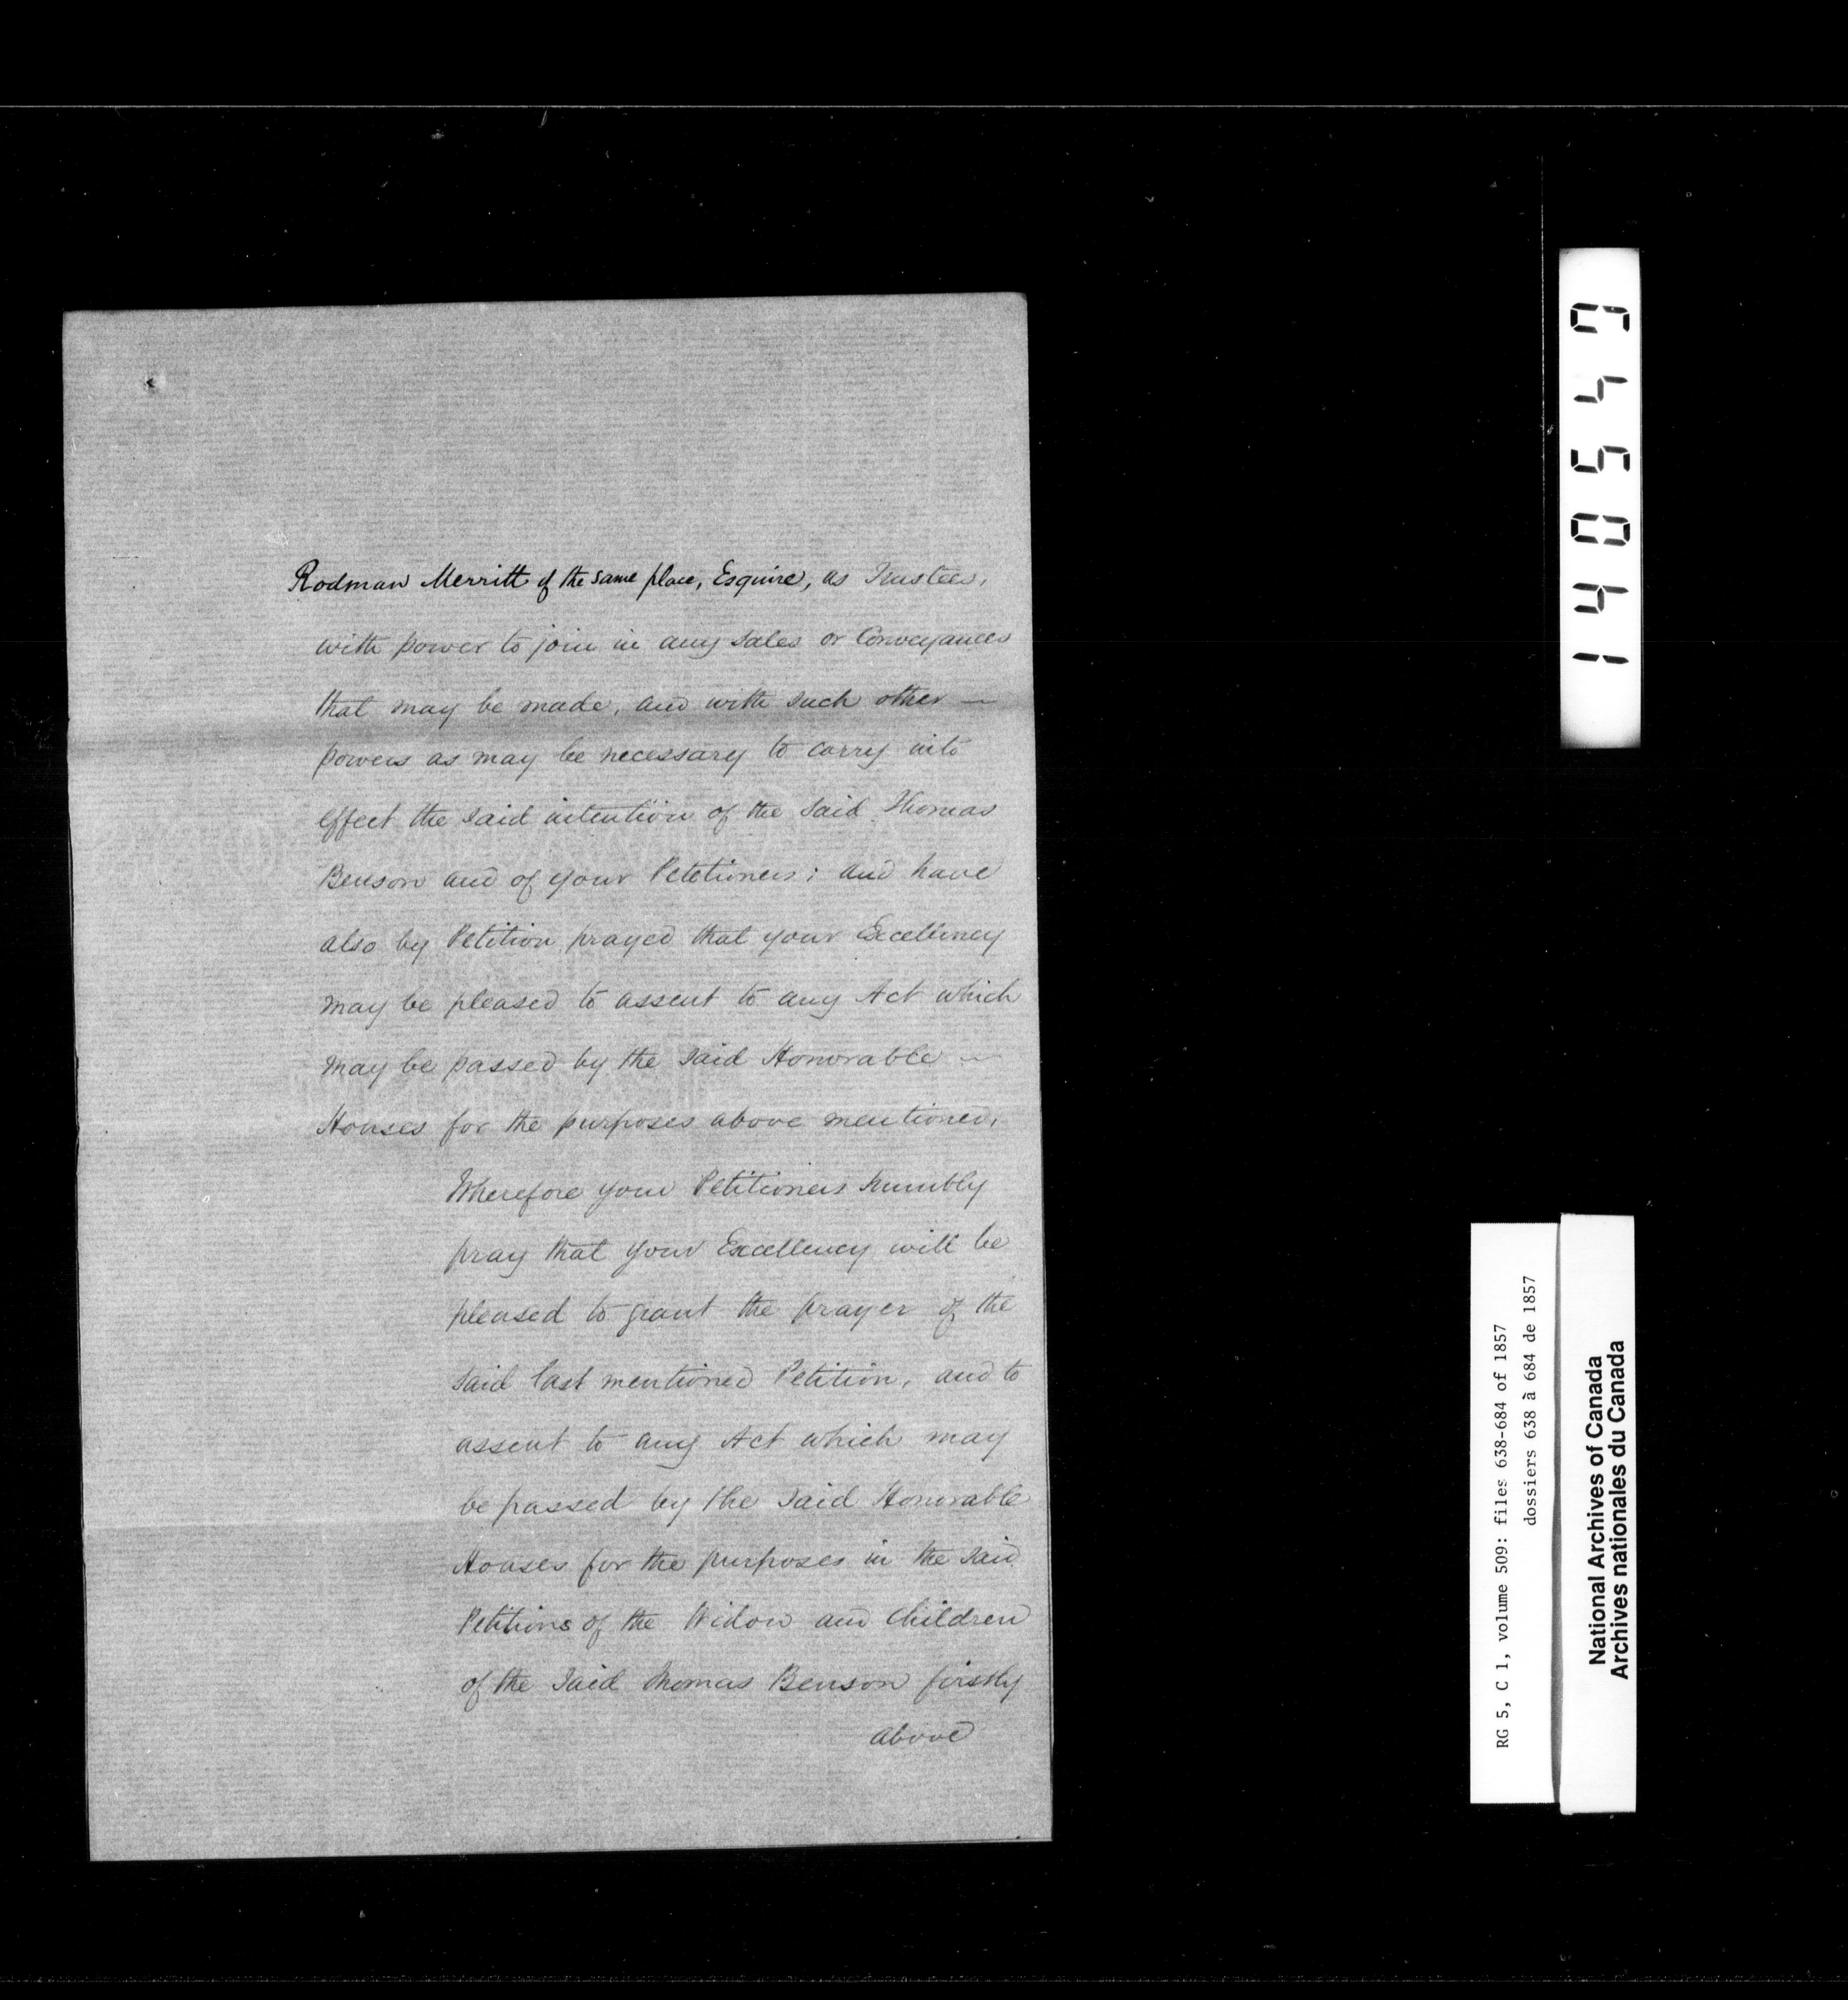 Rodman Merritt of the same place, Esquire, as Trustees,
with power to join in any sales or Conveyances
that may be made, and with such other —
powers as may be necessary to carry into
effect the said intention of the said Thomas
Benson and of your Petitioners; and have
also by Petition prayed that your Excellency
may be pleased to assent to any Act which
may be passed by the said Honorable —
Houses for the purposes above mentioned,
Wherefore your Petitioners humbly
pray that your Excellency will be
pleased to grant the prayer of the
said last mentioned Petition, and to
assent to any Act which may
be passed by the said Honorable
Houses for the purposes in the said
Petitions of the Widow and Children
of the said Thomas Benson firstly
above
140549
RG 5, C 1, volume 509: files 638-684 of 1857
dossiers 638 à 684 de 1857
National Archives of Canada
Archives nationales du Canada